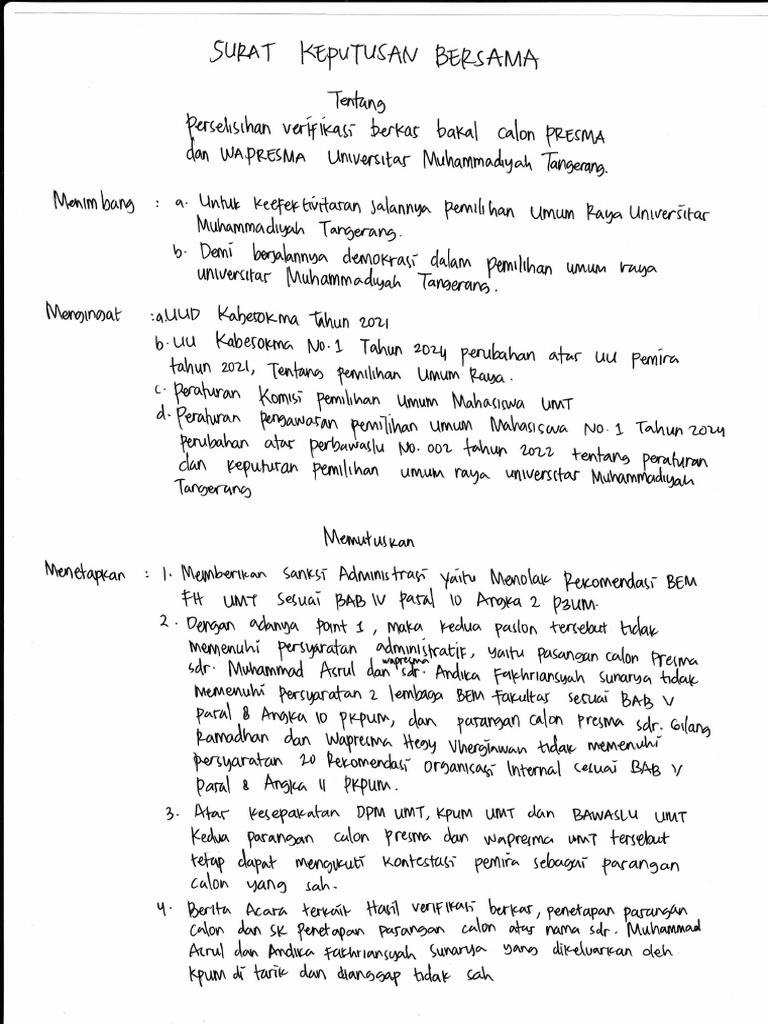 SURAT KEPUTUSAN BERSAMA
Tentang
Perselisihan verifikasi berkas bakal calon PRESMA
dan WAPRESMA Universitas Muhammadiyah Tangerang.
Menimbang : a. Untuk keefektivitasan jalannya pemilihan Umum Raya Universitas
Muhammadiyah Tangerang.
b. Demi berjalannya demokrasi dalam pemilihan umum raya
universitas Muhammadiyah Tangerang.
Mengingat : a. UUD Kabesokma Tahun 2021
b. UU Kabesokma No. 1 Tahun 2024 perubahan atas UU Pemira
tahun 2021, Tentang pemilihan Umum Raya.
c. Peraturan Komisi Pemilihan Umum Mahasiswa UMT
d. Peraturan pengawasan pemilihan umum Mahasiswa No. 1 Tahun 2024
perubahan atas perbawaslu No. 002 tahun 2022 tentang peraturan
dan keputusan pemilihan umum raya universitas Muhammadiyah
Tangerang
Memutuskan
Menetapkan : 1. Memberikan sanksi Administrasi yaitu Menolak Rekomendasi BEM
FH UMT sesuai BAB IV Pasal 10 Angka 2 P3UM.
2. Dengan adanya point 1, maka kedua paslon tersebut tidak
memenuhi persyaratan administratif, yaitu pasangan calon Presma
sdr. Muhammad Asrul dan wapresma sdr. Andika Fakhriansyah Sunarya tidak
memenuhi persyaratan 2 lembaga BEM Fakultas sesuai BAB V
Pasal 8 Angka 10 PKPUM, dan pasangan calon Presma sdr. Gilang
Ramadhan dan Wapresma Hegy Vherginwan tidak memenuhi
persyaratan 20 Rekomendasi Organisasi Internal sesuai BAB V
Pasal 8 Angka 11 PKPUM.
3. Atas kesepakatan DPM UMT, KPUM UMT dan BAWASLU UMT
kedua pasangan calon presma dan wapresma UMT tersebut
tetap dapat mengikuti kontestasi pemira sebagai pasangan
calon yang sah.
4. Berita Acara terkait Hasil verifikasi berkas, penetapan pasangan
calon dan SK Penetapan pasangan calon atas nama sdr. Muhammad
Asrul dan Andika Fakhriansyah Sunarya yang dikeluarkan oleh
KPUM di tarik dan dianggap tidak sah